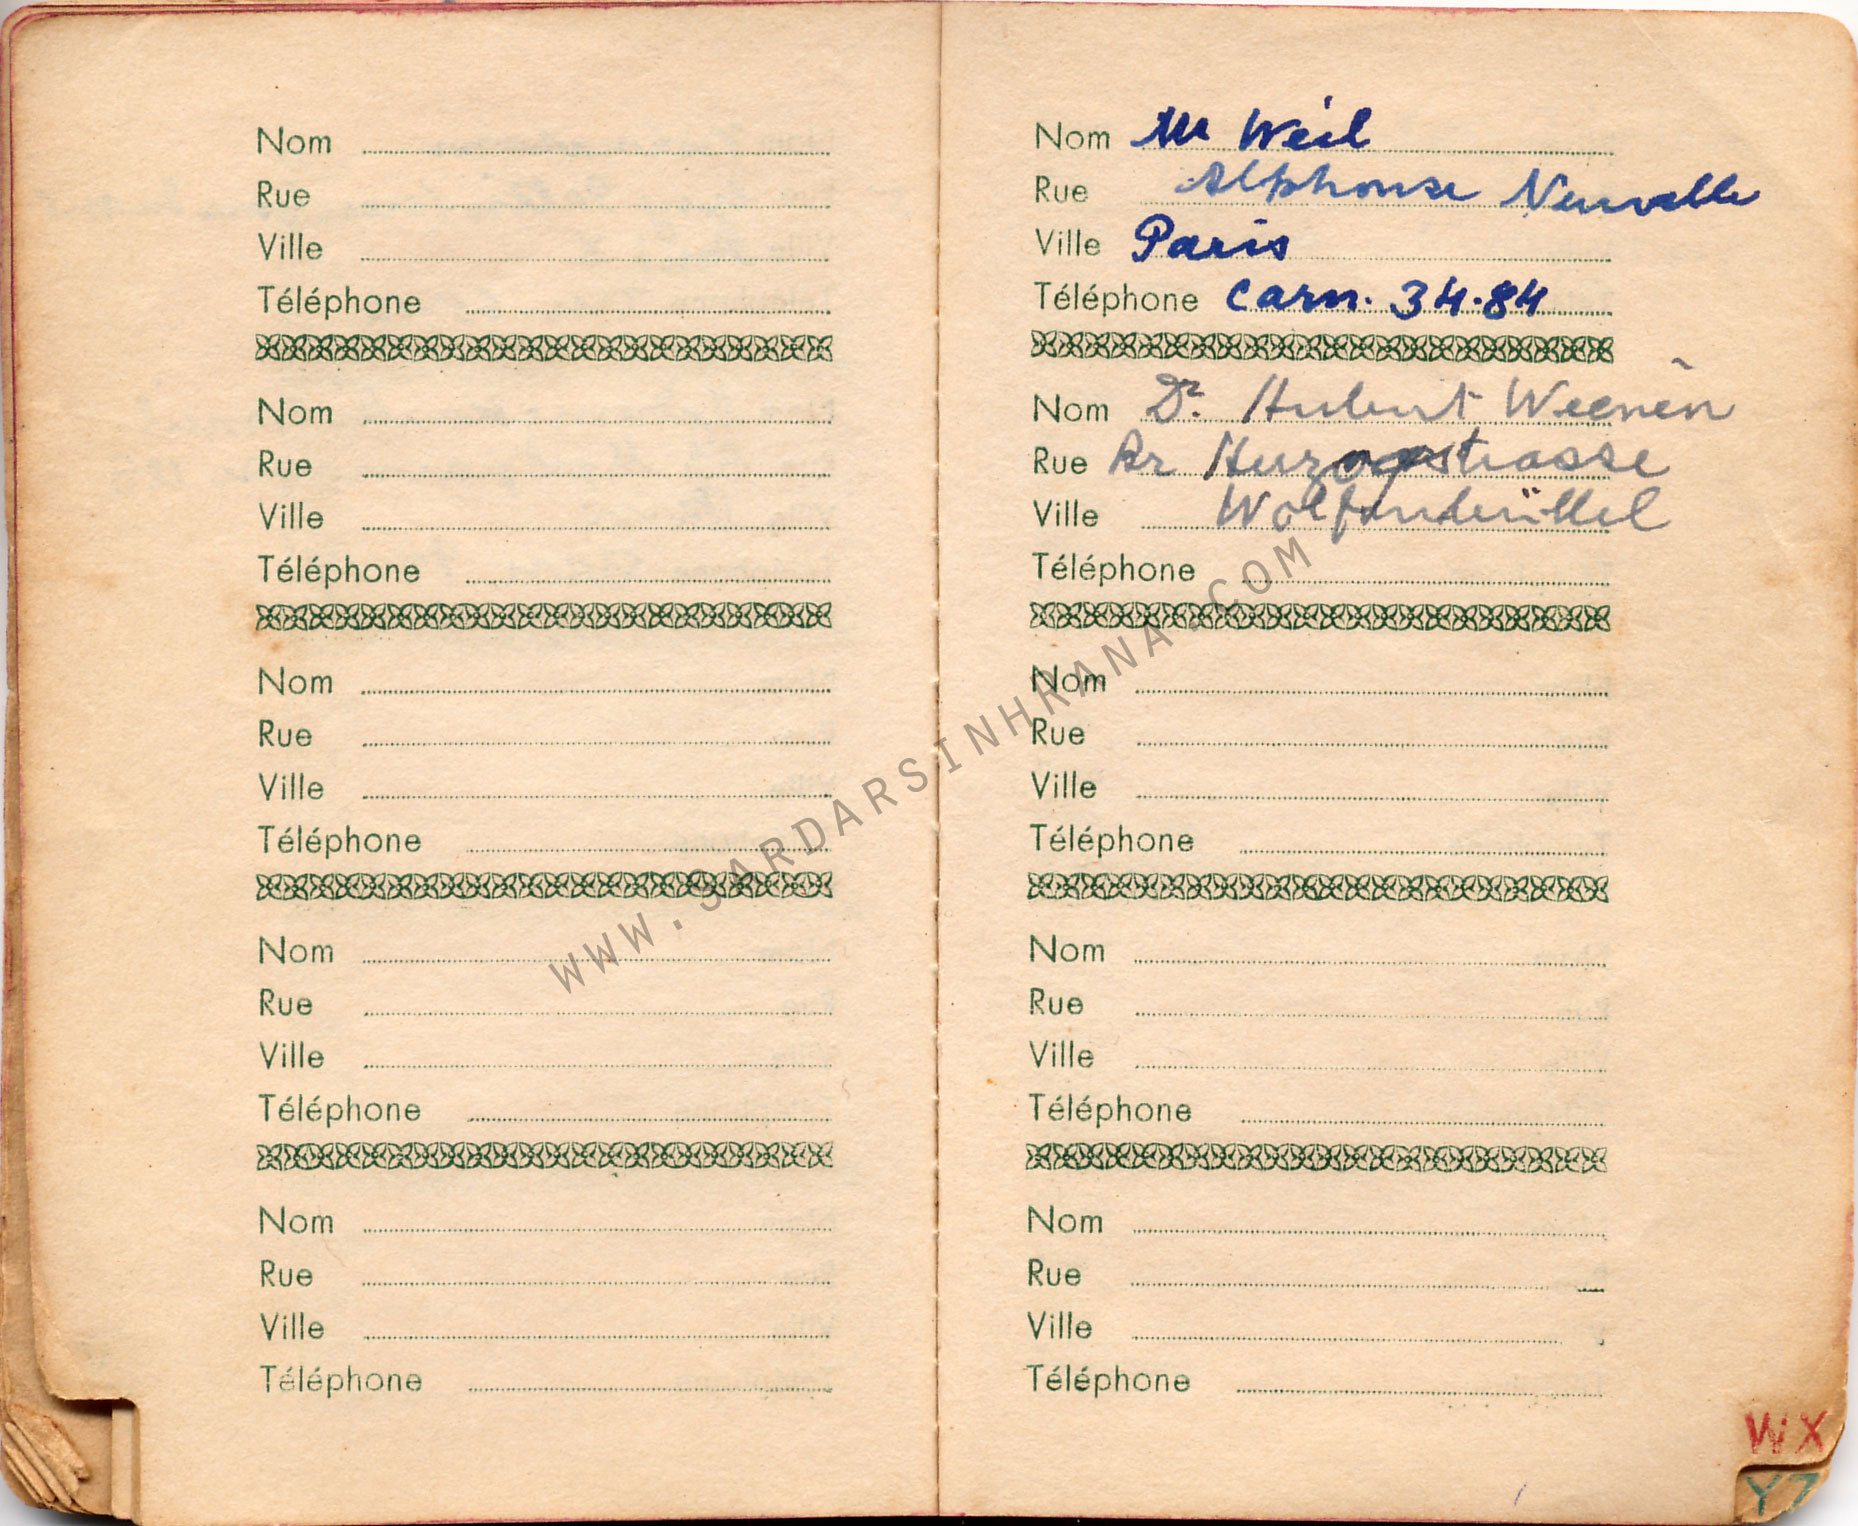 Nom
Rue
Ville
Téléphone
Nom
Rue
Ville
Téléphone
Nom
Rue
Ville
Téléphone
Nom
Rue
Ville
Téléphone
Nom
Rue
Ville
Téléphone
Nom Mr Weil
Rue Alphonse Neuville
Ville Paris
Téléphone Carn. 34.84
Nom Dr. Hubert
Rue Herzogstrasse
Ville
Téléphone
Nom
Rue
Ville
Téléphone
Nom
Rue
Ville
Téléphone
Nom
Rue
Ville
Téléphone
WX
YZ
WWW.SARDARSINHRANA.COM